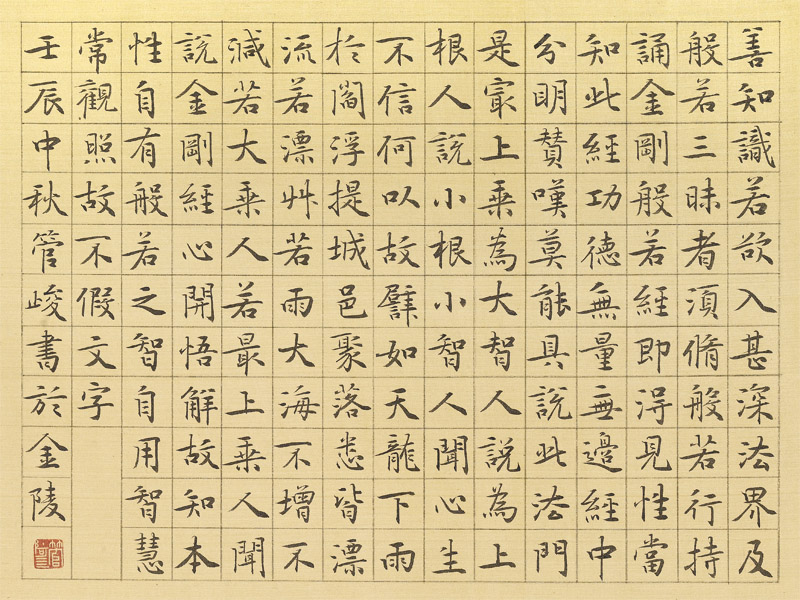 善知識若欲入甚深法界及
般若三昧者須脩般若行持
誦金剛般若經即得見性當
知此經功德無量無邊經中
分明賛嘆莫能具説此法門
是㝡上乘為大智人説為上
根人説小根小智人聞心生
不信何以故譬如天龍下雨
於閻浮提城邑聚落悉皆漂
流若漂艸若雨大海不增不
減若大乘人若最上乘人聞
説金剛經心開悟解故知本
性自有般若之智自用智慧
常觀照故不假文字
壬辰中秋管峻書於金陵